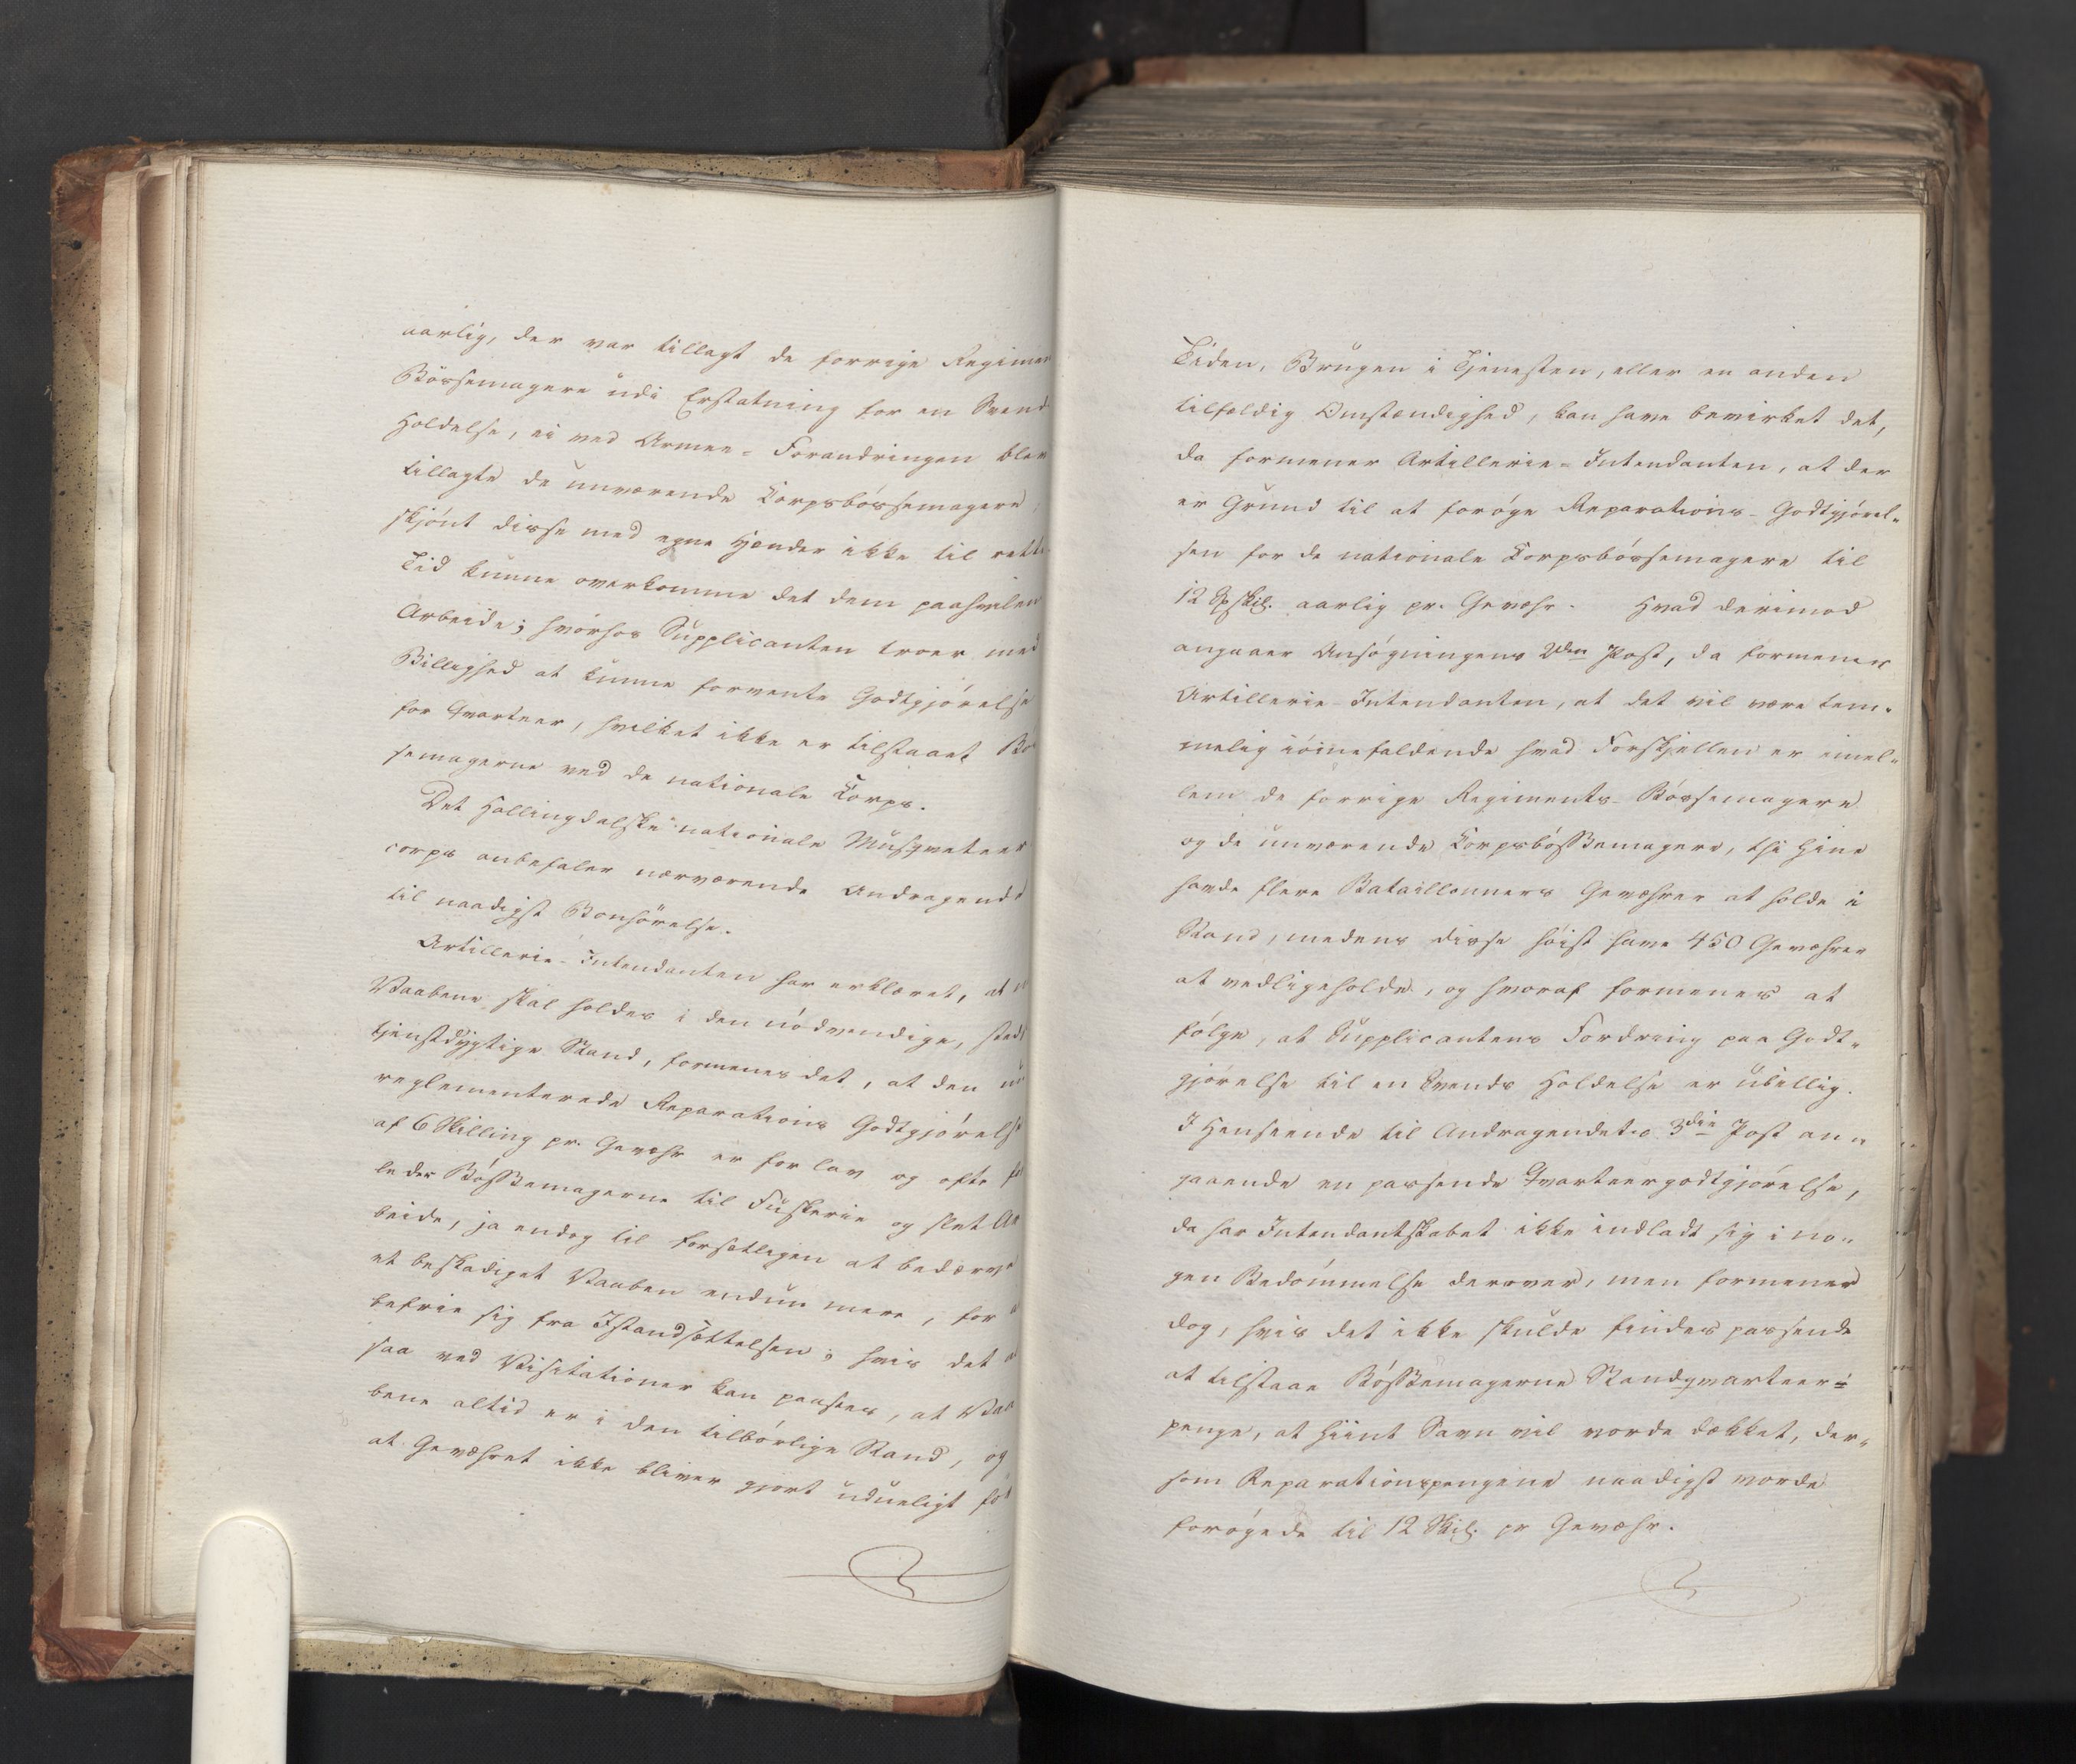 aarlig, der var tillagt de forrige Regimen
Bössemagere udi Erstatning for en Svends
Holdelse, ei ved Armee-Forandringen blev
tillagte de nuværende Corpsbössemagere,
skjönt disse med egne Hænder ikke til rette
Tid kunne overkomme det dem paahvilen
Arbeide; hvorhos Supplicanten troer med
Billighed at kunne forvente Godtgjörelse
for Qvarteer, hvilket ikke er tilstaaet Bös
semagerne ved de nationale Corps.
Det Hallingdalske nationale Musqveteer
corps anbefaler nærværende Andragende
til naadigst Bönhörelse.
Artillerie-Intendanten har erklæret, at
Vaabene skal holdes i den nödvendige, stedse
tjenstdygtige Stand, formenes det, at den nu
reglementerede Reparations Godtgjörelse
af 6 Skilling pr. Gevæhr er for lav og ofte for
leder Bösssemagerne til Fuskerie og slet Ar
beide, ja endog til forsætligen at bedærve
et beskadiget Vaaben endnu mere, for
befrie sig fra Istandsættelsen; hvis det
saa ved Visitationer kan paasees, at Vaa
bene altid er i den tilbörlige Stand, og
at Gevæhret ikke bliver gjort udueligt för
Tiden, Brugen i Tjenesten, eller en anden
tilfældig Omstændighed, kan have bevirket det,
da formener Artillerie-Intendanten, at der
er Grund til at foröge Reparations-Godtgjörel-
sen for de nationale Corpsbössemagere til
12 Skil. aarlig pr. Gevæhr. Hvad derimod
angaaer Ansögningens 2den Post, da formener
Artillerie-Intendanten, at det vil være tem-
melig iöinefaldende hvad Forskjellen er imel-
lem de forrige Regiments-Bössemagere
og de nuværende Corpsbösssemagere, thi Hine
havde flere Bataillonners Gevæhrer at holde i
Stand, medens disse höist have 450 Gevæhrer
at vedligeholde, og hvoraf formenes at
fölge, at Supplicantens Fordring paa Godt-
gjörelse til en Svends Holdelse er ubillig.
I Henseende til Andragendets 3die Post an-
gaaende en passende Qvarteergodtgjörelse,
da har Intendantskabet ikke indladt sig i no-
gen Bedömmelse derover, men formener
dog, hvis det ikke skulde findes passende
at tilstaae Bösssemagerne Standqvarteer-
penge, at Hiint Savn vil vorde dækket, der-
som Reparationspengene naadigst vorde
forögede til 12 Skil. pr Gevæhr.